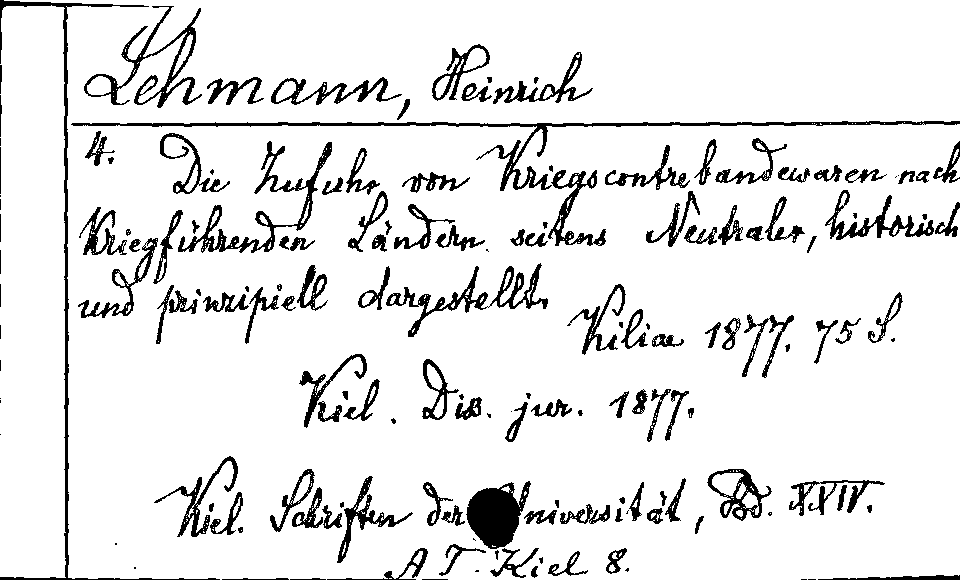 Lehmann, Heinrich
4. Die Zufuhr von Kriegscontrebandewaren nach
Kriegführenden Ländern seitens Neutraler, historisch
und prinzipiell dargestellt.
Kiliae 1877. 75 S.
Kiel. Diss. jur. 1877.
Kiel. Schriften der Universität, Bd. XXIV.
AT. Kiel 8.